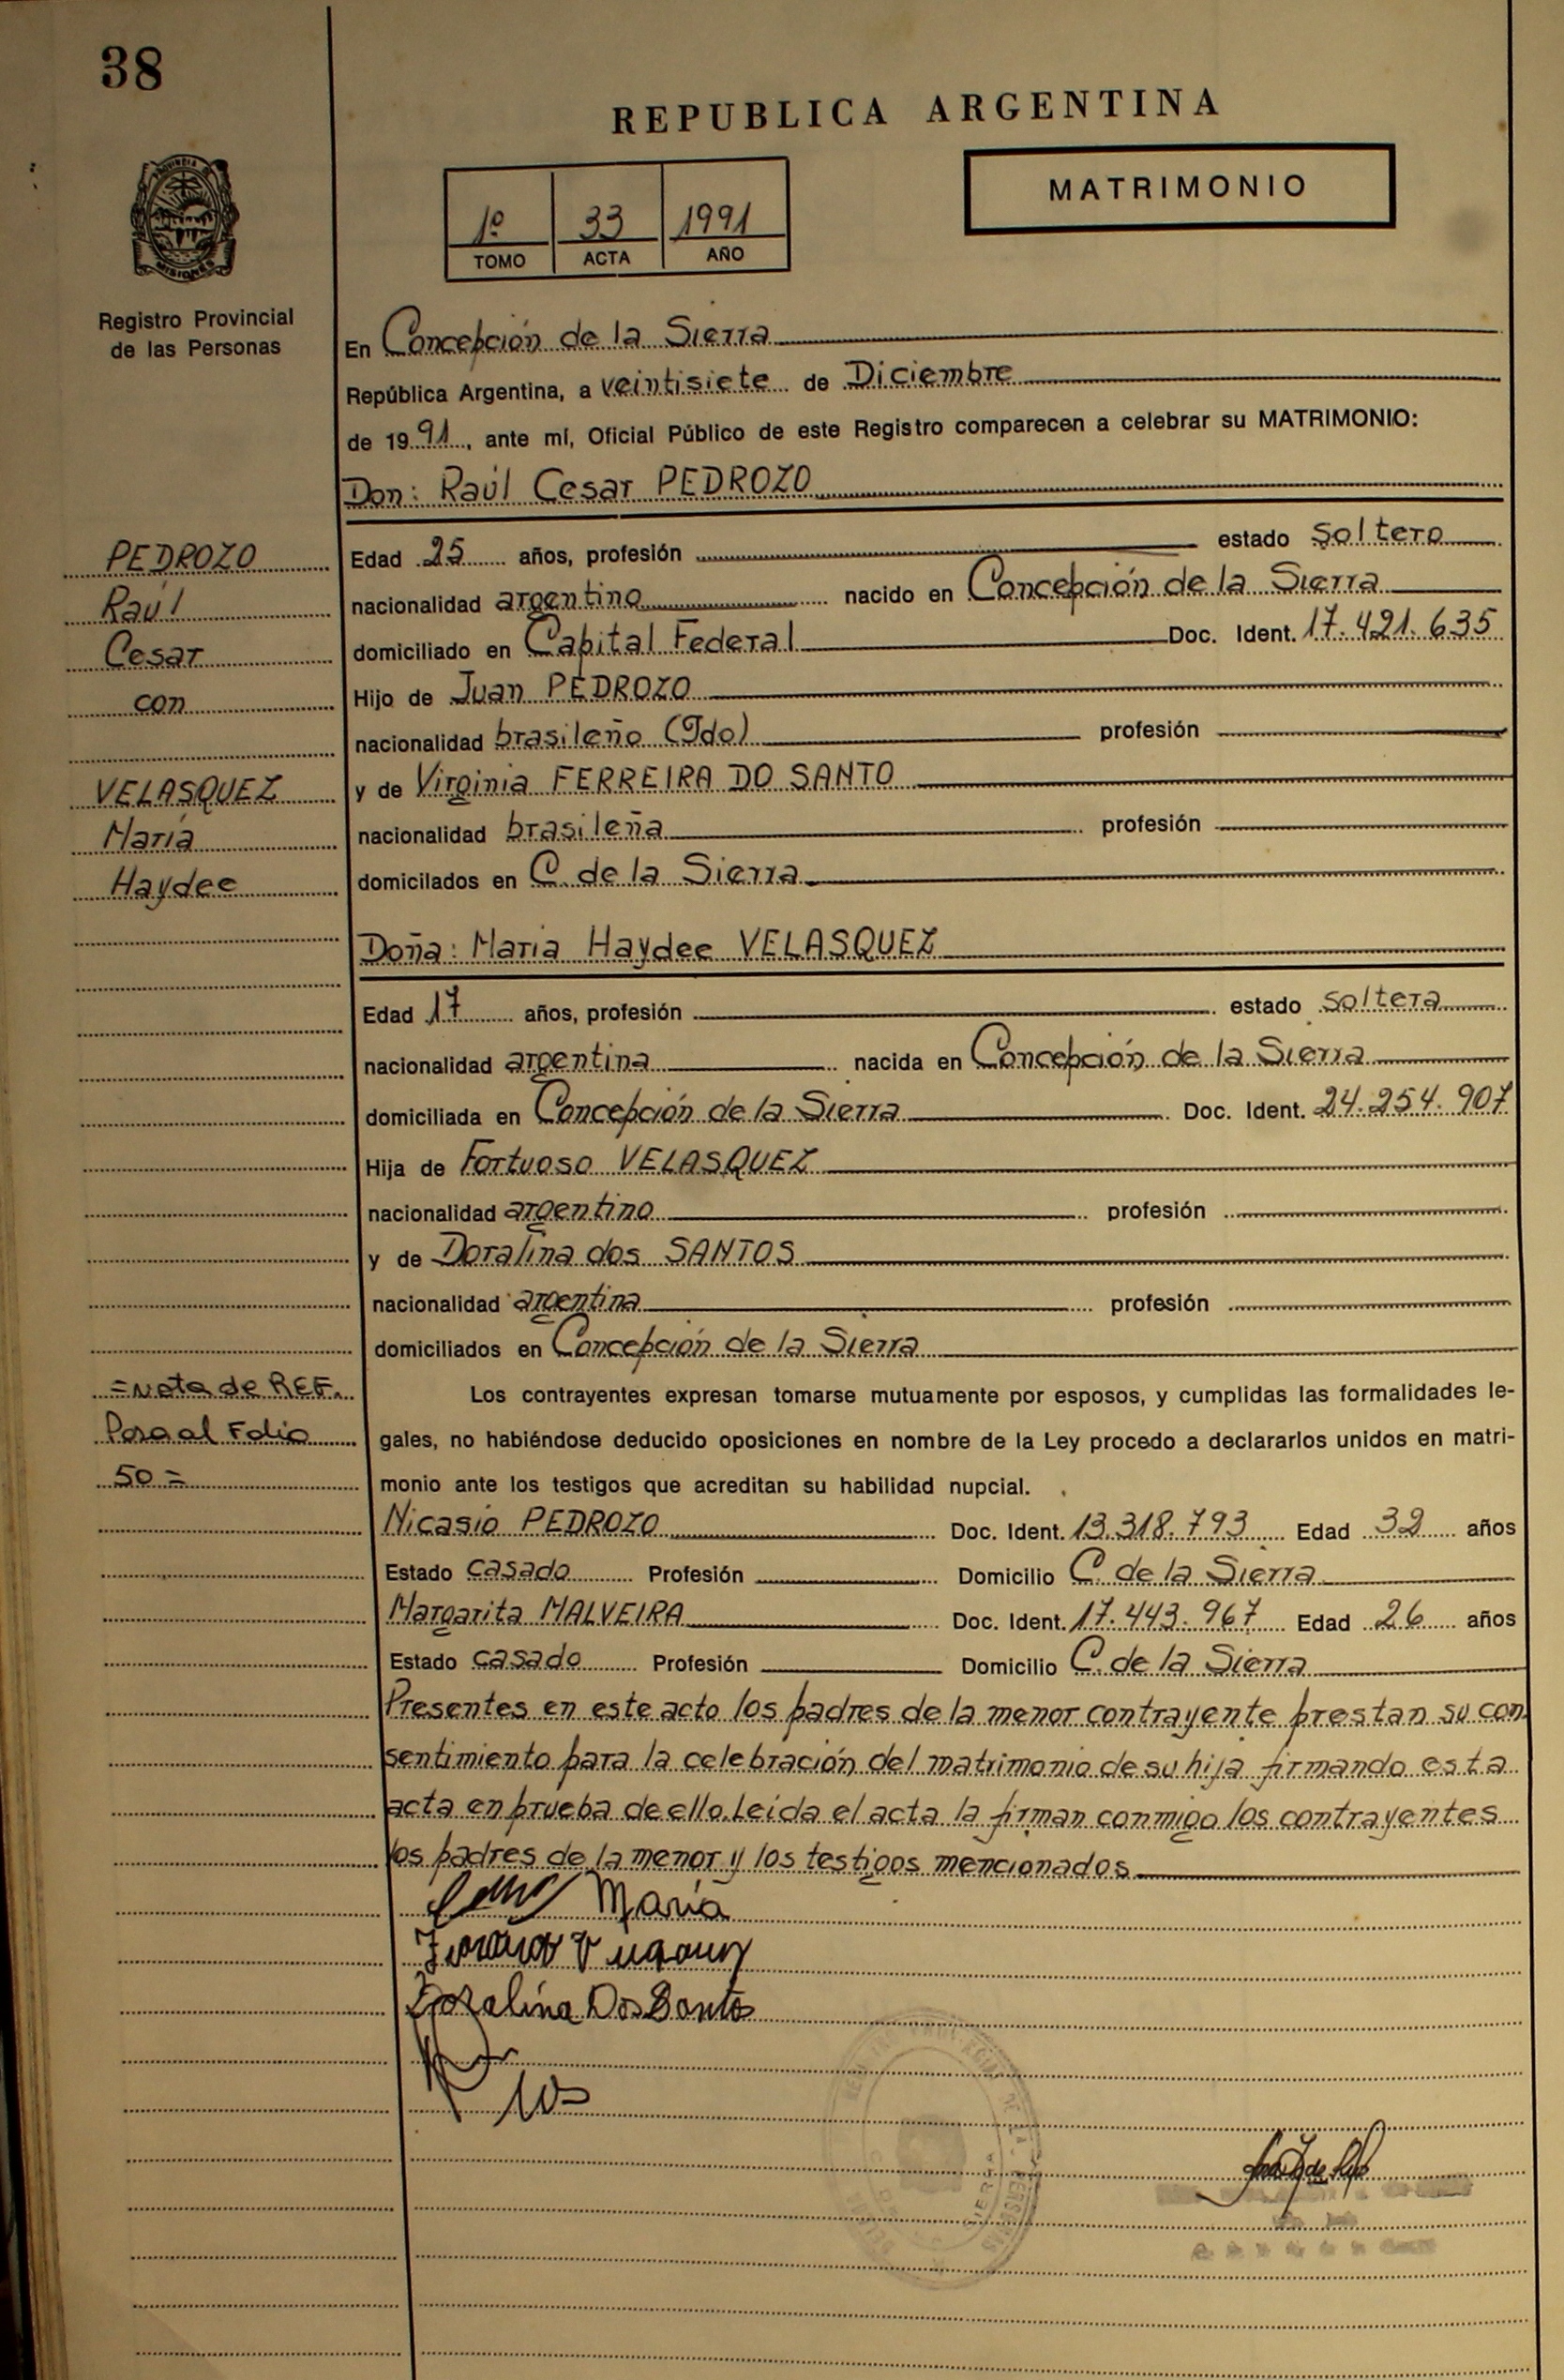 38
REPUBLICA ARGENTINA
MATRIMONIO
1º 33 1991
TOMO ACTA AÑO
PROVINCIA DE
MISIONES
Registro Provincial
de las Personas
En Concepción de la Sierra
República Argentina, a veintisiete de Diciembre
de 1991, ante mí, Oficial Público de este Registro comparecen a celebrar su MATRIMONIO:
Don: Raúl Cesar PEDROZO
PEDROZO
Raúl
Cesar
con
VELASQUEZ
María
Haydee
Edad 25 años, profesión estado soltero
nacionalidad argentino nacido en Concepción de la Sierra
domiciliado en Capital Federal Doc. Ident. 17.421.635
Hijo de Juan PEDROZO
nacionalidad brasileño (Fdo) profesión
y de Virginia FERREIRA DO SANTO
nacionalidad brasileña profesión
domicilados en C. de la Sierra
Doña: Maria Haydee VELASQUEZ
Edad 17 años, profesión estado soltera
nacionalidad argentina nacida en Concepción de la Sierra
domiciliada en Concepción de la Sierra Doc. Ident. 24.254.907
Hija de Fortuoso VELASQUEZ
nacionalidad argentino profesión
y de Doralina dos SANTOS
nacionalidad argentina profesión
domiciliados en Concepción de la Sierra
=Nota de REF.
Pasa al Folio
50=
Los contrayentes expresan tomarse mutuamente por esposos, y cumplidas las formalidades le-
gales, no habiéndose deducido oposiciones en nombre de la Ley procedo a declararlos unidos en matri-
monio ante los testigos que acreditan su habilidad nupcial.
Nicasio PEDROZO Doc. Ident. 13.318.793 Edad 32 años
Estado casado Profesión Domicilio C. de la Sierra
Margarita MALVEIRA Doc. Ident. 17.443.967 Edad 26 años
Estado casado Profesión Domicilio C. de la Sierra
Presentes en este acto los padres de la menor contrayente prestan su con
sentimiento para la celebración del matrimonio de su hija firmando esta
acta en prueba de ello. Leída el acta la firman conmigo los contrayentes
los padres de la menor y los testigos mencionados
María
Doralina Dos Santos